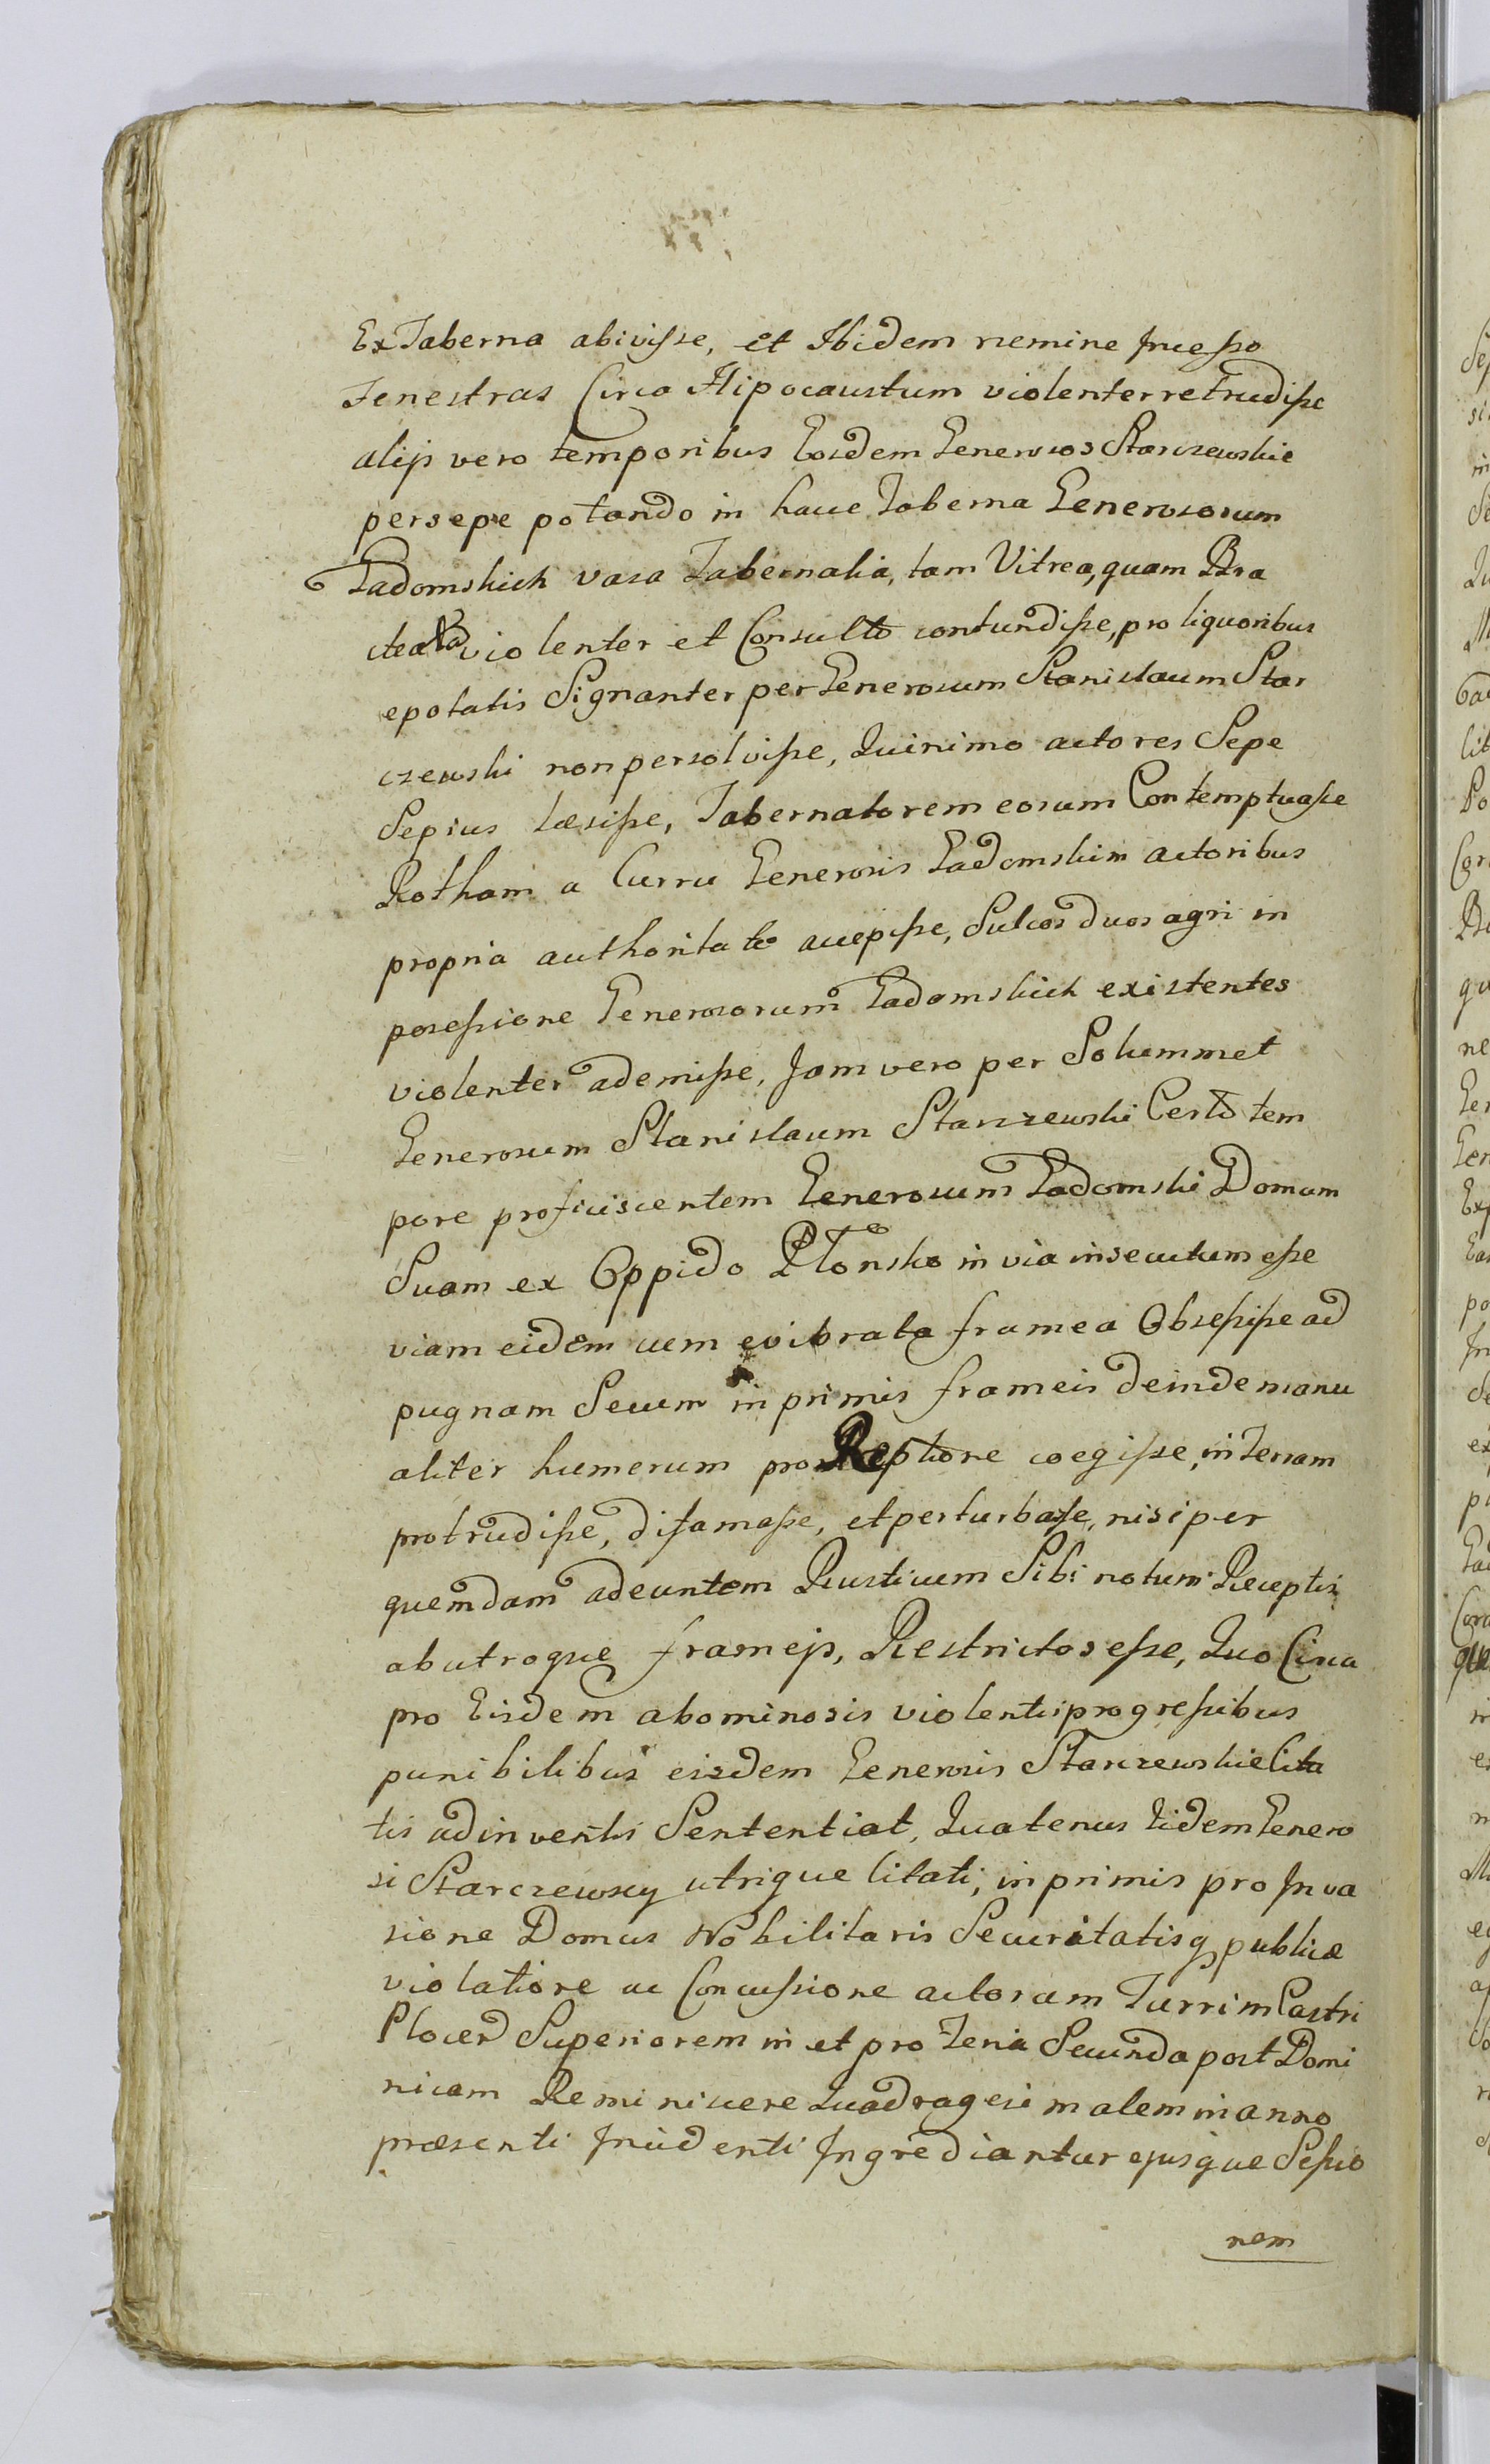 Ex Taberna abivisse, et Ibidem nemine Incesso
Fenestras Circa Hipocaustum violenter retrudisse
alijs vero temporibus Eosdem Generosos Starczewskie
persepe potando in hacce Taberna Generosorum
Gadomskich vasa Tabernalia, tam Vitrea, quam Bra
cteata violenter et Consulto contundisse, pro liquoribus
epotatis Signanter per Generosum Stanislaum Star
czewski non persolvisse, Quinimo actores Sepe
Sepius læsisse, Tabernatorem eorum Contemptuasse
Rotham a Curru Generosis Gadomskim actoribus
propria authoritate accepisse, Sulcos duos agri in
posessione Generosorum Gadomskich existentes
violenter ademisse, Jam vero per Solummet
Generosum Stanislaum Starczewski Certo tem
pore proficiscentem Generosum Gadomski Domum
Suam ex Oppido Płonsko in via insecutum esse
viam eidem cum evibrata framea Obsessisse ad
pugnam Secum in primis frameis deinde manu
aliter humerum pro Reptione coegisse, in Terram
protrudisse, difamasse, et perturbasse, nisi per
quemdam adeuntem Rusticum Sibi notum Receptis
ab utroque frameis, Restrictos esse, Quo Circa
pro Eisdem abominosis violentis progressibus
punibilibus eisdem Generosis Starczewskie Cita
tis adinventis Sententiat, Quatenus Iidem Genero
si Starczewscy utrique Citati, in primis pro Inva
sione Domus Nobilitaris Securitatisq publicæ
violatione ac Concussione actorum Turrim Castri
Plocen Superiorem in et pro Feria Secunda post Domi
nicam Reminiscere Quadragesimalem in anno
præsenti Incidenti Ingrediantur ejusque Sessio
nem